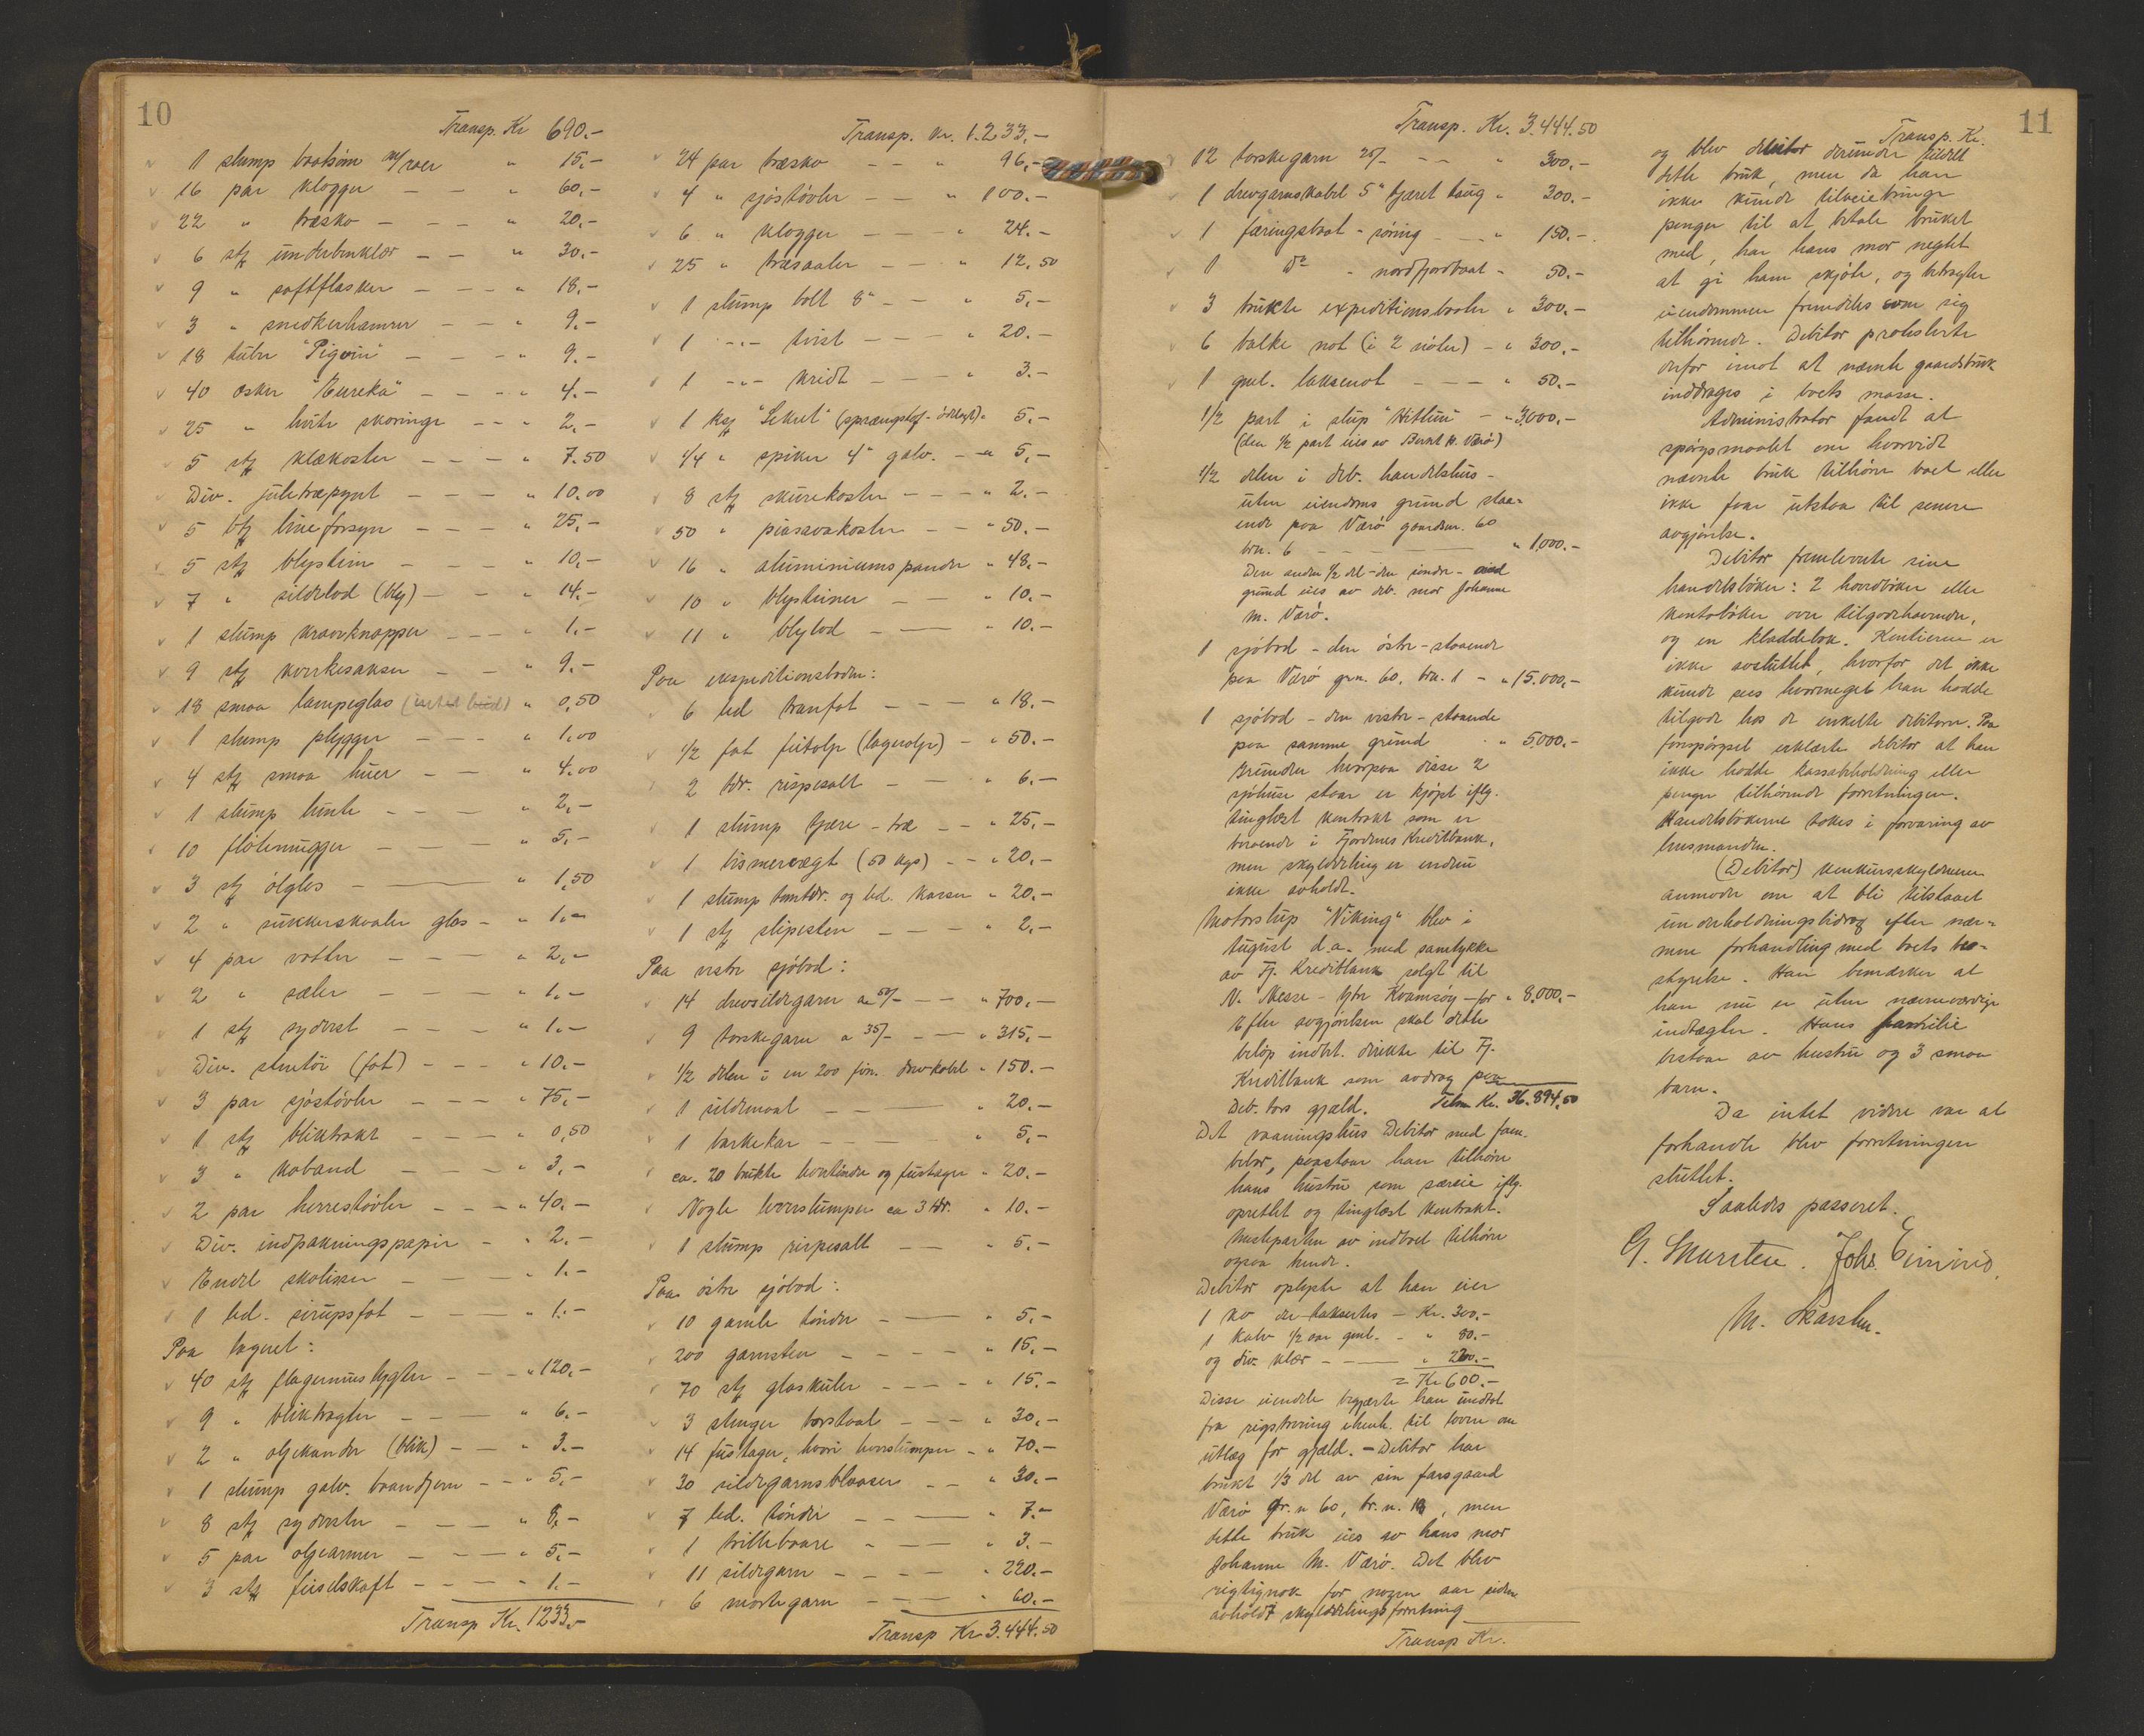 10
Transp. Kr 690.-
1 slump baatsöm m/roer " 15.-
16 par klogger - - " 60,-
22 " træsko - - - " 20,-
6 stk underbenklær - - " 30.-
9 " saftflasker - - - " 18.-
3 " snedkerhamrer - - " 9.-
18 tuber "Pigvin" - - - " 9.-
40 æsker "Eureka" - - - " 4.-
25 " hvite skoringe - - " 2.-
5 stk klækoster - - - " 7.50
Div. juletræpynt - - - " 10.00
5 btj lineforsyn - - - " 25,-
5 stk blystein - - - " 10,-
7 " sildelod (bly) - - " 14.-
1 slump kraveknapper - - - " 1.-
9 stk kverkesakser - - " 9.-
18 smaa lampeglas (intet bud) " 0,50
1 slump plygger - - - " 1,00
4 stk smaa huer - - " 4.00
1 slump hunte - - - " 2,-
10 flötemugger - - - " 5,-
3 stk ölglas - " 1,50
2 " sukkerskaaler glas - " 1.-
4 par votter - - - " 2,-
2 " sæler - - - - " 1.-
1 stk sydvest - - - " 1.-
Div. stentöi (fat) - - - " 10.-
3 par sjöstövler - - - " 75,-
1 stk bliktrakt - - - " 0,50
3 " koband - - - " 3,-
2 par herrestövler - - - " 40,-
Div. indpakningspapir - " 2,-
Endel skolisser - - - " 1.-
1 led. sirupsfat - - - " 1.-
Paa lageret:
40 stk flagermuslygter - - " 120.-
9 " bliktragter - - - " 6.-
2 " oljekander (blik) - - " 3.-
1 slump galv. baandjern - - " 5.-
8 stk sydvester - - - " 8,-
5 par oljeærmer - - - " 5,-
3 stk feiselskaft - - - " 1.-
Transp Kr. 1233.-
Transp. Kr. 1.233,-
24 par træsko - - " 96,-
4 " sjöstövler - - " 100.-
6 " klogger - - - " 24.-
25 " træsaaler - - " 12,50
1 slump bolt 8" - - " 5,-
1 -"- tvist - - - " 20.-
1 -"- kridt - - - " 3.-
1 ksg "Sekur" (sprængstof - ödelagt) " 5.-
1/4 " spiker 4" galv. - " 5,-
8 stk skurekoster - - - " 2.-
50 " piasavakoster - - " 50.-
16 " aluminiumspander " 48.-
10 " blysteiner - - " 10.-
11 " blylod - - " 10.-
Paa expeditionsboden:
6 led tranfat - - - " 18.-
1/2 fat feitolje (lagerolje) - " 50.-
2 tdr. rispesalt - - " 6.-
1 slump tjære - træ - - " 25,-
1 bismervægt (50 kgs) - - " 20.-
1 slump tomtdr. og led. kasser " 20.-
1 stk slipesten - - - " 2,-
Paa vestre sjöbod:
14 drevsildegarn a 50/- - - " 700,-
9 torskegarn a 35/- - - " 315,-
1/2 delen i en 200 fvn. drevkabel " 150.-
1 sildemaal - - " 20.-
1 barkekar - - - " 5,-
ca. 20 brukte levertönder og fustager " 20.-
Nogle leverslumper ca 3 tdr. " 10.-
1 slump rispesalt - - " 5.-
Paa östre sjöbod:
10 gamle tönder - - " 5.-
200 garnsten - - - - " 15,-
70 stk glaskuler - - - " 15.-
3 stenger borstaal - - - " 30,-
14 fustager, hvori leverslumper - " 70.-
30 sildegarnsblaaser - - " 30.-
7 led. tönder - - - " 7.-
1 trillebaare - - " 3.-
11 sildegarn - - - - " 220.-
6 mortegarn - - - " 60.-
Transp Kr 3.444.50
Transp. Kr. 3.444.50
12 torskegarn 25/- - - " 300,-
1 drevgarnskabel 5" tjæret taug " 300.-
1 færingsbaat - söring - - " 150.-
1 do - nordfjordbaat - 50.-
3 brukte expeditionsbaater " 300.-
6 balke not (i 2 nöter) - " 300,-
1 gml. laksenot - - - " 50.-
1/2 part i slup "Hitlun" - " 3,000.-
(den 1/2 part eies av Bernt K. Værö)
1/2 delen i deb. handelshus -
uten eiendoms grund staa-
ende paa Værö gaardsnr. 60
brn. 6 - - - " 1,000.-
Den anden 1/2 del - den indre - med
grund eies av deb. mor Johanne
M. Værö.
1 sjöbod - den östre - staaende
paa Værö grn. 60, brn. 1 - " 15.000,-
1 sjöbod - den vestre - staaende
paa samme grund " 5,000.-
Grunden hvorpaa disse 2
sjöhuse staar er kjöpt iflg.
tinglæst kontrakt som er
beroende i Fjordenes Kreditbank,
men skylddeling er endnu
ikke avholdt.
Motorslup "Viking" blev i
August d.a. med samtykke
av Fj. Kreditbank solgt til
N. Messe - Ytre Kvamsöy - for " 8,000.-
Efter avgjörelsen skal dette
belöp indbet. direkte til Fj.
Kreditbank som avdrag paa
Deb.tors gjæld. Tilsm Kr. 36.894,50
Det vaaningshus Debitor med fam.
bebor, paastaar han tilhöre
hans hustru som særeie iflg.
oprettet og tinglæst kontrakt.
Mesteparten av indboet tilhöre
ogsaa hende.
Debitor oplyste at han eier
1 ko der taksertes - Kr. 300.-
1 kalv 1/2 aar gml. - " 80.-
og div. klær - - " 220.-
= Kr 600.-
Disse eiendele begjærte han undtat
fra registrering ihenh. til loven om
utlæg for gjæld. - Debitor har
brukt 1/3 del av sin farsgaard
Værö gr. n 60, br. n. , men
dette bruk eies av hans mor
Johanne M. Værö. Det blev
rigtignok for nogen aar siden
avholdt skylddelingsforretning
Transp Kr.
11
Transp. Kr.
og blev debitor derunder tildelt
dette bruk, men da han
ikke kunde tilveiebringe
penger til at betale bruket
med, har hans mor negtet
at gi ham skjöte, og betragter
eiendommen fremdeles som sig
tilhörende. Debitor protesterte
derfor imot at nævnte gaardsbruk
inddrages i boets masse.
Administrator fandt at
spörgsmaalet om hvorvidt
nævnte bruk tilhöre boet eller
ikke faar utstaa til senere
avgjörelse.
Debitor fremleverte sine
handelsböker: 2 hovedböker eller
kontoböker over tilgodehavender,
og en kladdebok. Kontiene er
ikke avsluttet, hvorfor det ikke
kunde sees hvormeget han hadde
tilgode hos de enkelte debitorer. Paa
forespörgsel erklærte debitor at han
ikke hadde kassabeholdning eller
penger tilhörende forretningen.
Handelsbökerne tokes i forvaring av
lensmanden.
(Debitor) konkursskyldneren
anmoder om at bli tilstaaet
underholdningsbidrag efter nær-
mere forhandling med boets be-
styrelse. Han bemærker at
han nu er uten nævneværdige
indtægter. Hans familie
bestaar av hustru og 3 smaa
barn.
Da intet videre var at
forhandle blev forretningen
sluttet.
Saaledes passeret.
Johs Eimind.
M. Skarsbu.